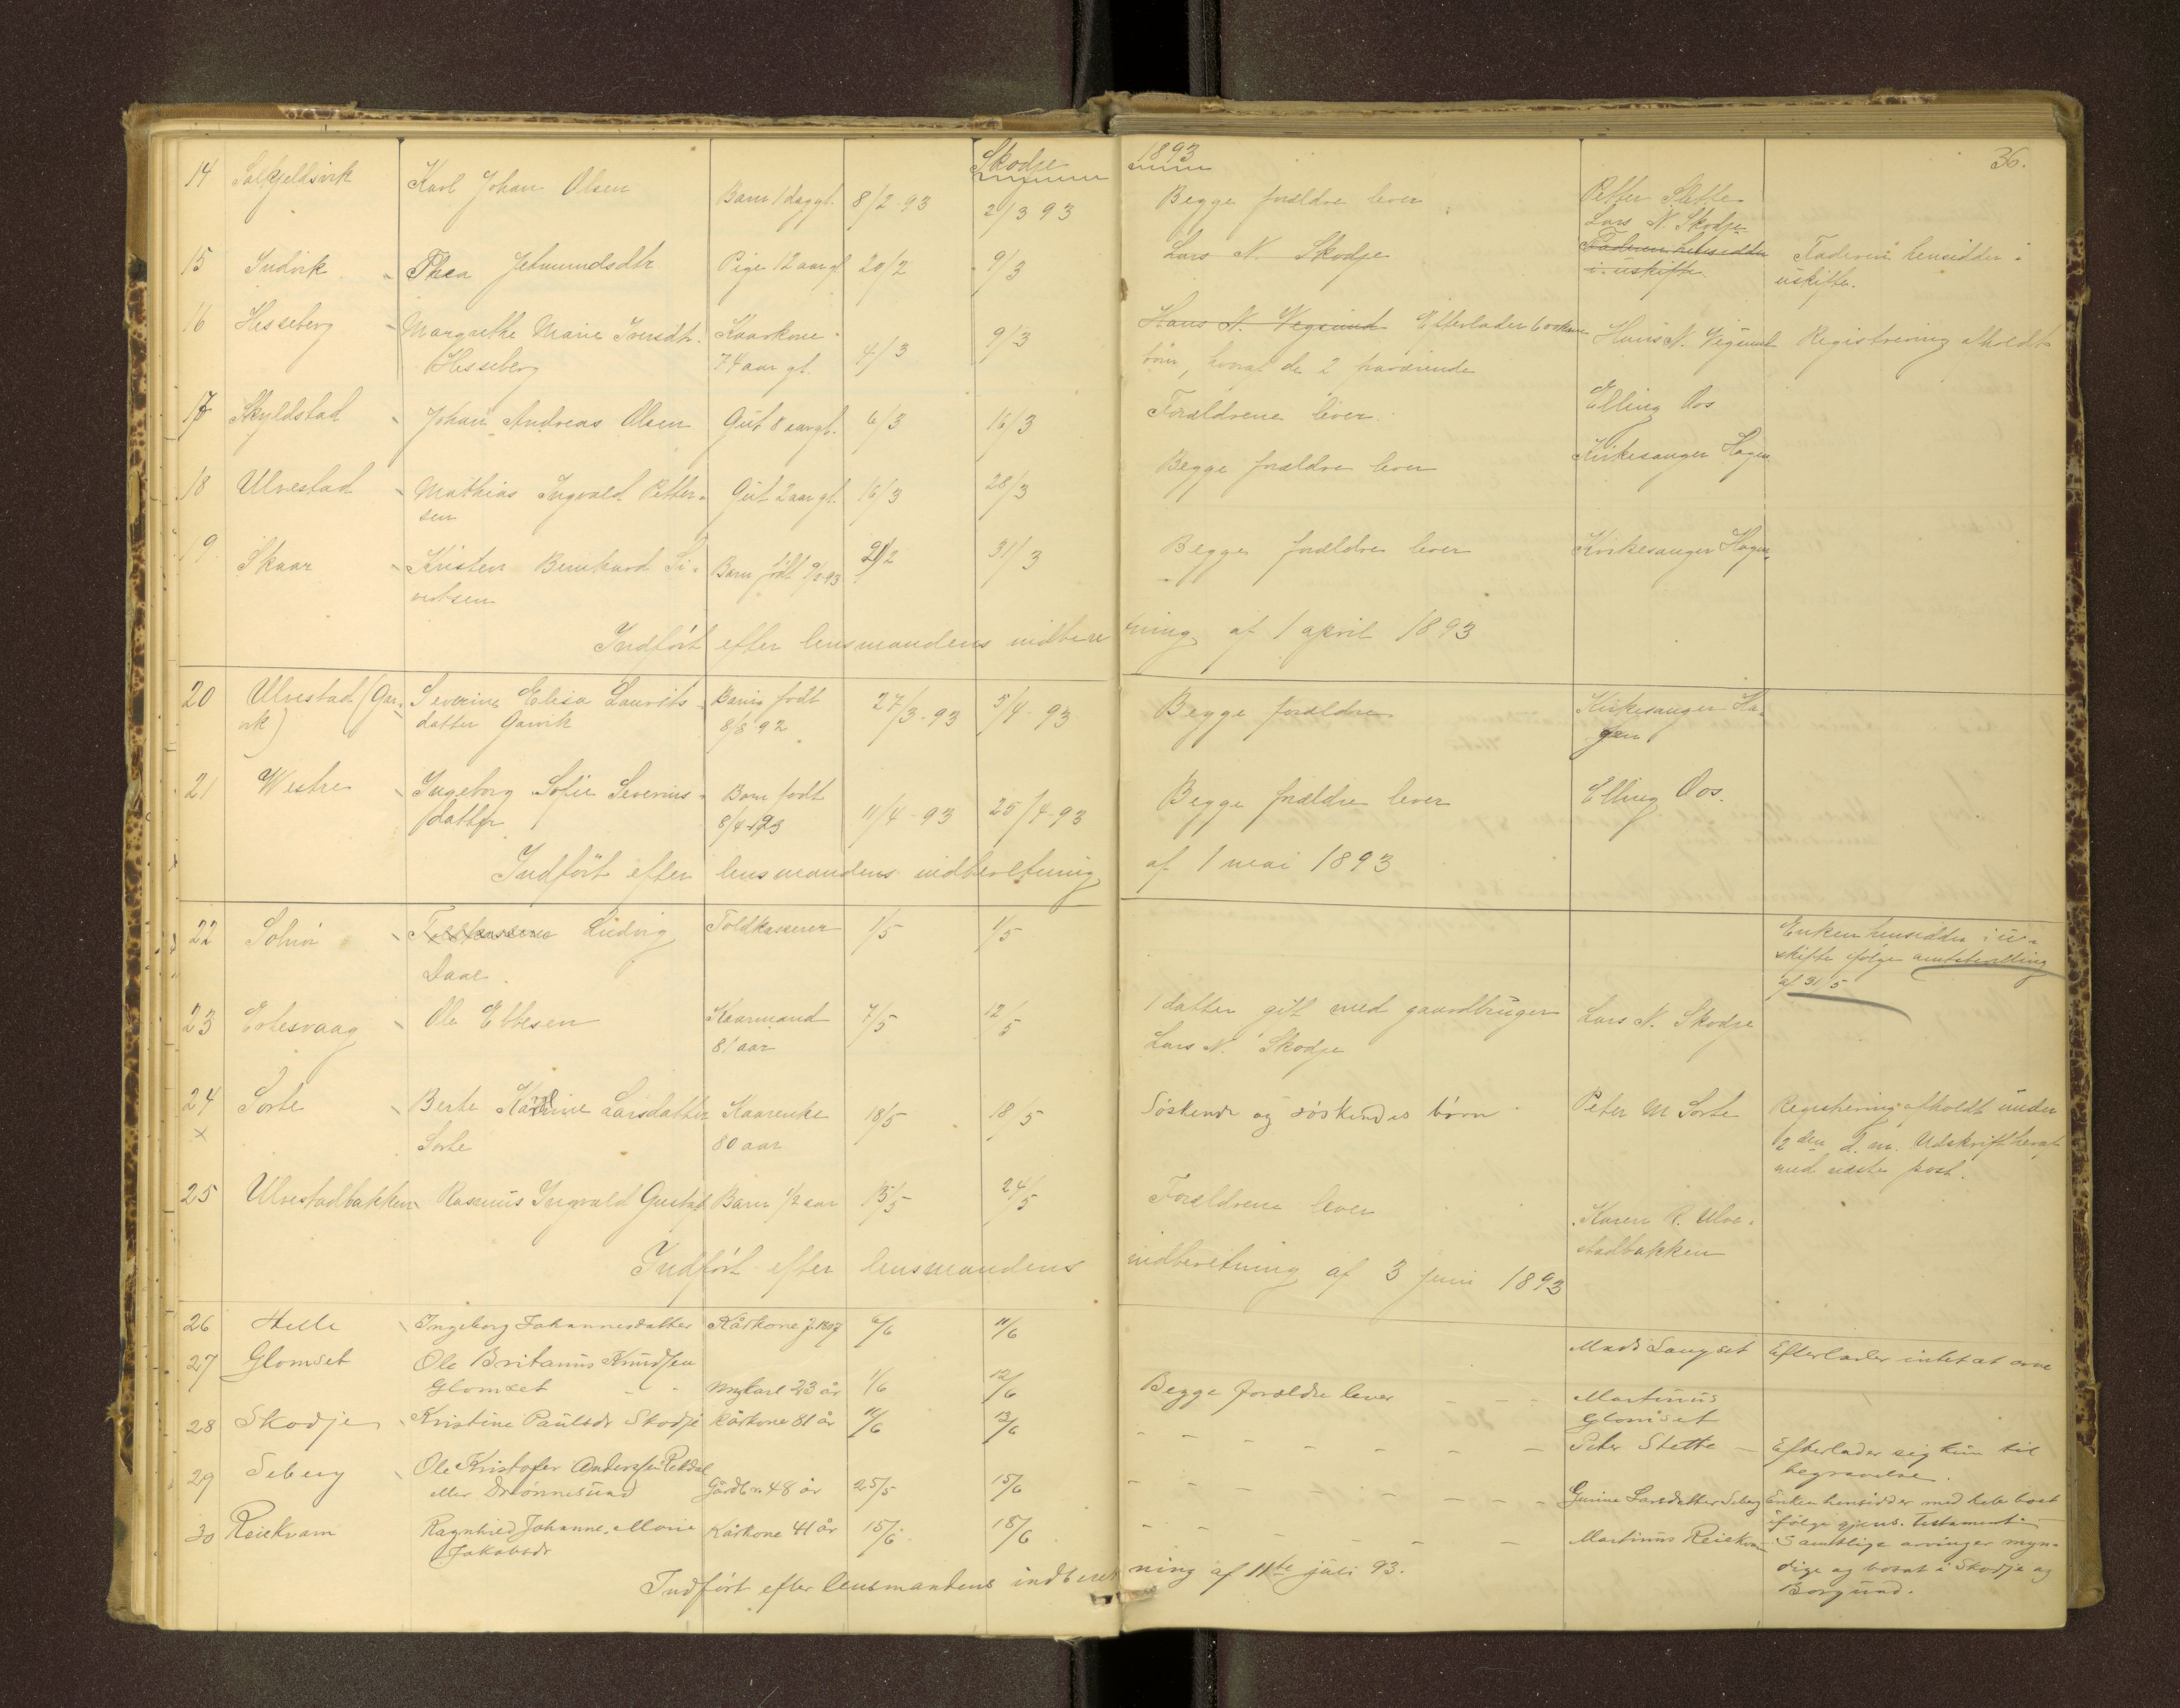 Skodje 1893 36.
14 Solkjeldsvik Karl Johan Olsen Barn 1 dag gl. 8/2-93 2/3 93 Begge forældre lever Petter Stette
Lars N. Skodje
15 Indvik Thea Jetmundsdtr Pige 12 aar gl 20/2 9/3 Lars N. Skodje Faderen hensidder Faderen hensidder i
i uskifte. uskifte.
16 Hesseberg Margrethe Marie Iversdtr. Kaarkone 4/3 9/3 Hans N. Vegsund Efterlader 6 Hans N. Vegsund Registrering afholdt
Hesseberg 74 aar gl. børn, hvoraf de 2 fraværende
17 Skyldstad Johan Andreas Olsen Gut 8 aar gl. 6/3 16/3 Forældrene lever Elling Oos
18 Ulvestad Mathias Ingvald Petter- Gut 2 aar gl. 16/3 28/3 Begge forældre lever Kirkesanger Hagen
sen
19 Skaar Kristen Bernhard Si- Barn født 9/2 93 21/2 31/3 Begge forældre lever Kirkesanger Hagen
vertsen
Indført efter lensmandens indberetning af 1 april 1893
20 Ulvestad (Gar- Severine Elisa Laurits- Barn født 27/3-93 5/4-93 Begge forældre Kirkesanger Ha-
vik) datter Garvik 8/8 92 gen
21 Westre Ingeborg Sofie Severins- Barn født 11/4-93 25/4-93 Begge forældre lever Elling Oos.
datter 8/4 93
Indført efter lensmandens indberetning af 1 mai 1893
22 Solnør Ludvig Toldkasserer 1/5 1/5 Enken hensidder i u-
Daae skifte ifølge amtsbevilling
af 31/5
23 Eolesvaag Ole Ebbesen Kaarmand 7/5 12/5 1 datter gift med gaardbruger Lars N. Skodje
81 aar Lars N. Skodje
24 Sorte Berte Karine Larsdatter Kaarenke 18/5 18/5 Søskende og søskendes børn Peter M Sorte Registrering afholdt under
x Sorte 80 aar 2den d. m. Udskrift heraf
med næste post.
25 Ulvestadbakken Rasmus Ingvald Gustaf Barn 1/2 aar 15/5 24/5 Forældrene lever Karen R. Ulve-
stadbakken
Indført efter lensmandens indberetning af 3 juni 1893
26 Helle Ingeborg Johannesdatter Kårkone f. 1807 6/6 11/6 Mads Langset Efterlader intet at arve
27 Glomset Ole Britanus Knudsen
Glomset - - ungkarl 23 år 1/6 12/6 Begge forældre lever - - - Martinus
Glomset
28 Skodje Kristine Paulsdr Skodje kårkone 81 år 11/6 13/6 - - - - - - - Peter Stette - Efterlader sig kun til
begravelse.
29 Seberg Ole Kristofer Andersen Rekdal
eller Drønnesund Gårdbr. 48 år 25/5 15/6 - - - - - - - Gurine Larsdatter Seberg Enken hensidder med hele boet
ifølge gjens. testament
30 Reiekvam Ragnhild Johanne Marie Kårkone 41 år 15/6 18/6 - - - - - - Martinus Reiekvam Samtlige arvinger myn-
Jakobsdr dige og bosat i Skodje og
Borgund.
Indført efter lensmandens indberetning af 11te juli 93.